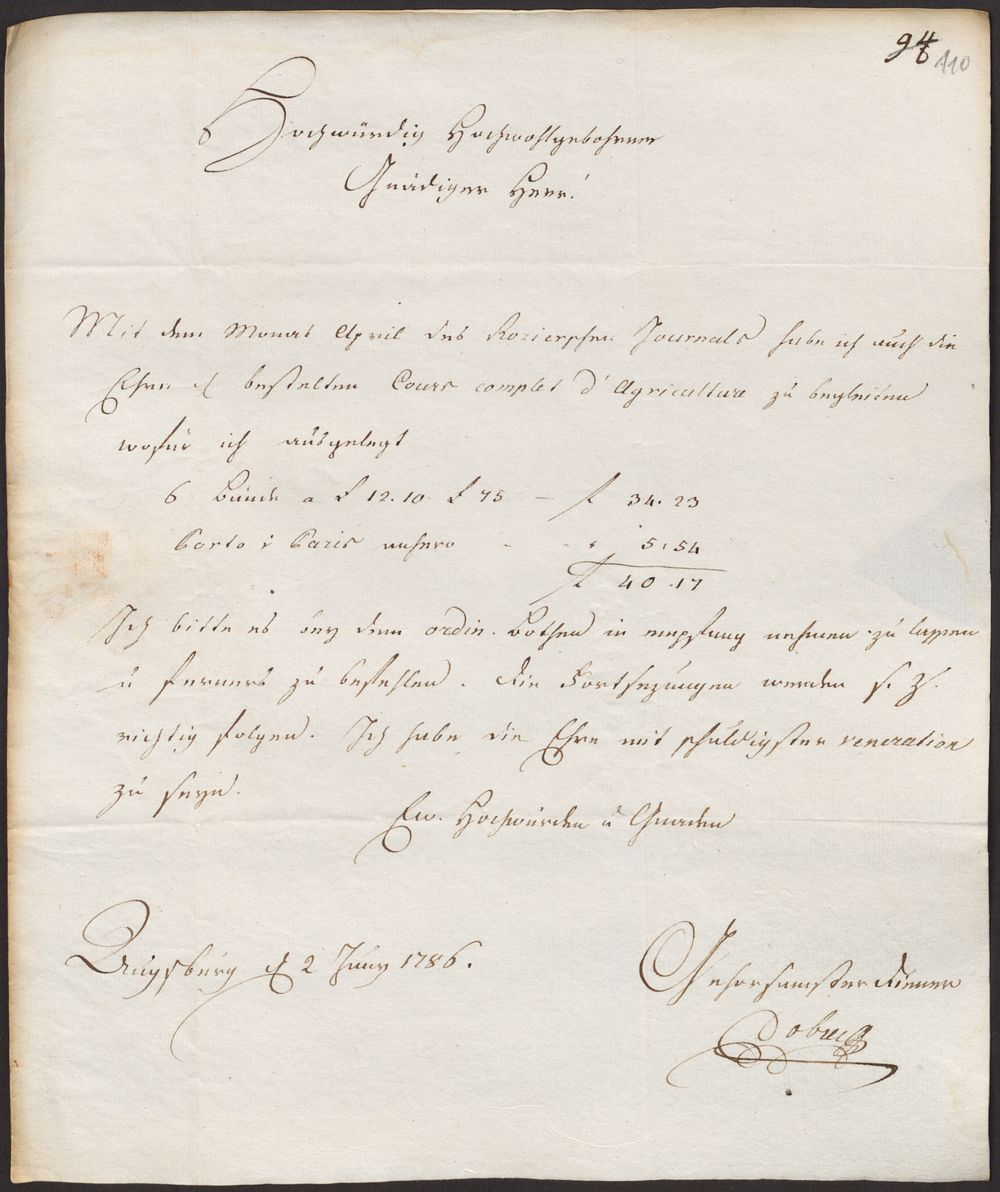 94 110
Hochwürdig Hochwohlgebohrner
Gnädiger Herr!
Mit dem Monat April des Rozierschen Journals habe ich auch die
Ehre d bestelten Cours complet d'Agriculture zu begleiten
wofür ich ausgelegt
6 Bände a £ 12.10 £ 75 — f 34. 23
Porto v Paris anhero - - " 5. 54
f 40. 17
Ich bitte es bey dem ordin. Bothen in empfang nehmen zu lassen
u ferners zu befehlen. Die Fortsezungen werden s. Z.
richtig folgen. Ich habe die Ehre mit schuldigster veneration
zu seyn.
Ew. Hochwürden u Gnaden
Augsburg d 2 Juny 1786.
Gehorsamster Diener